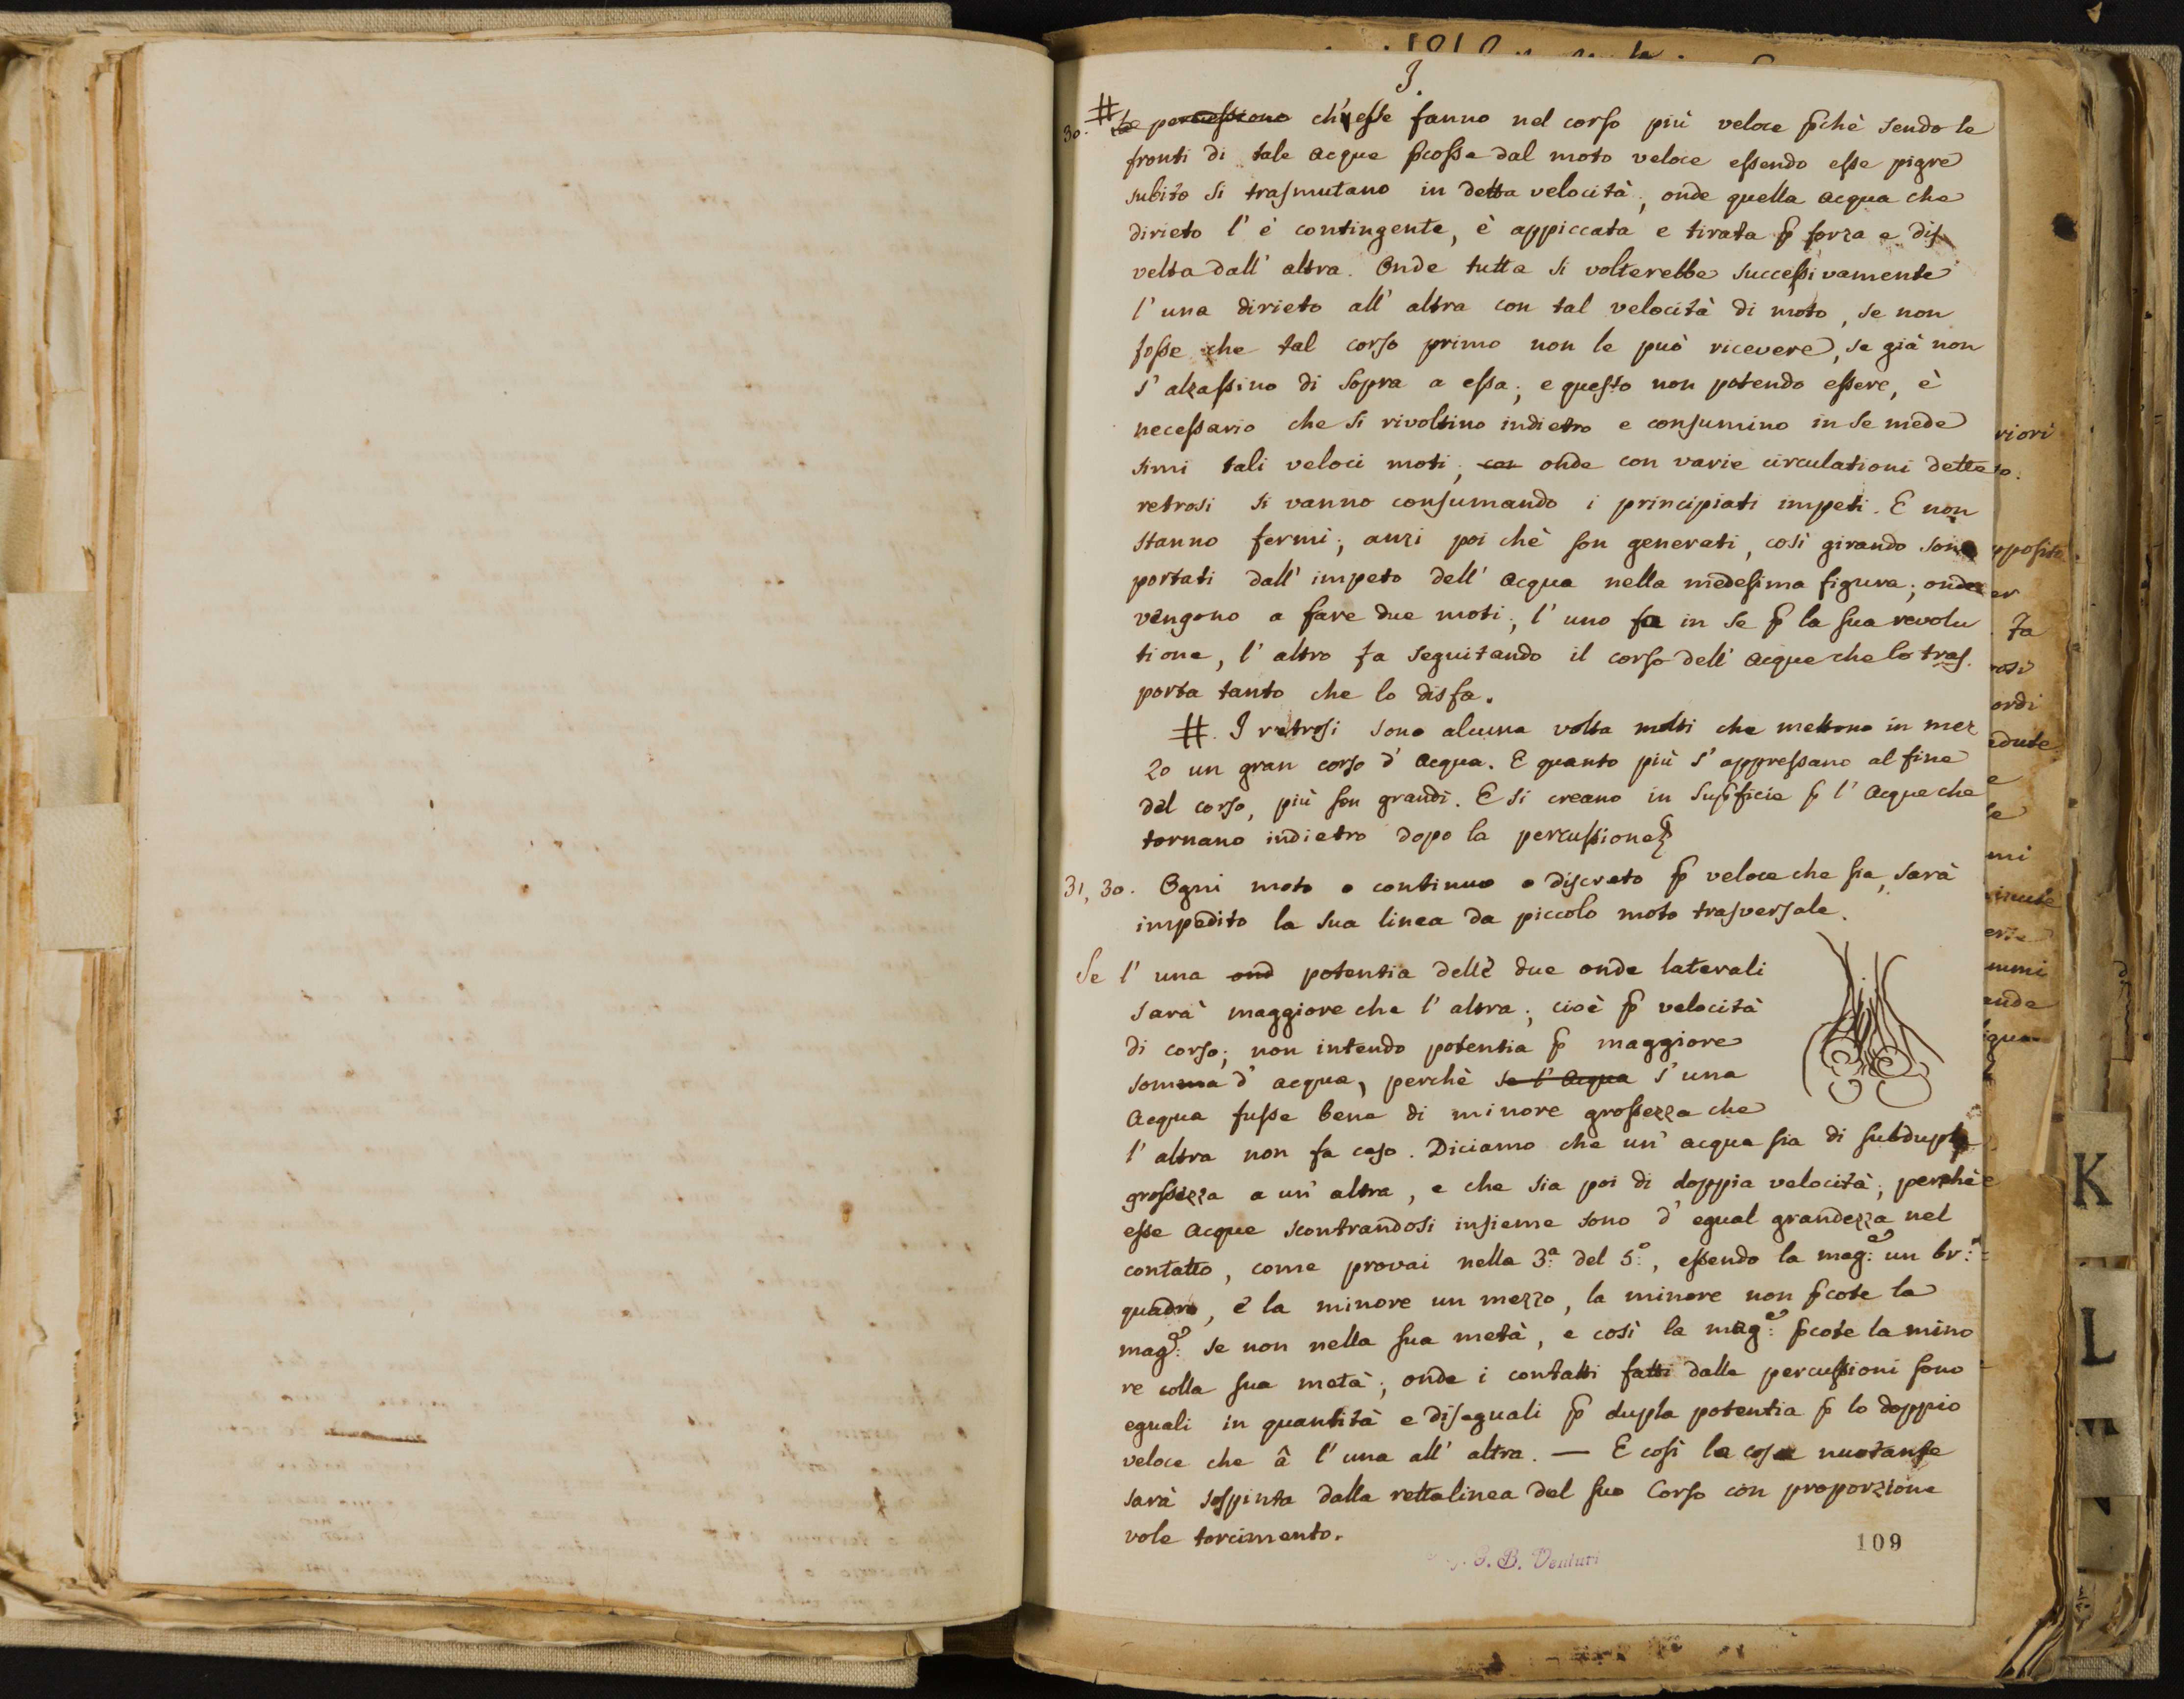 I.
30. # le percussione ch'esse fanno nel corso più veloce p̄chè sendo le
fronti di tale acque p̄cosse dal moto veloce essendo esse pigre
subito si trasmutano in detta velocità; onde quella acqua che
dirieto l'è contingente, è appiccata e tirata p̄ forza e dis
velta dall'altra. Onde tutta si volterebbe successivamente
l'una dirieto all'altra con tal velocità di moto, se non
fosse che tal corso primo non le può ricevere, se già non
s'alzassino di sopra a essa; e questo non potendo essere, è
necessario che si rivoltino indietro e consumino in se mede
simi tali veloci moti; con onde con varie circulationi dette
retrosi si vanno consumando i principiati impeti. E non
stanno fermi; anzi poi chè son generati, così girando sono
portati dall'impeto dell'acqua nella medesima figura; onde
vengono a fare due moti; l'uno fa in se p̄ la sua revolu
tione, l'altro fa seguitando il corso dell'acque che lo tras.
porta tanto che lo disfa.
#. I retrosi sono alcuna volta molti che mettono in mez
zo un gran corso d'acqua. E quanto più s'appressano al fine
del corso, più son grandi. E si creano in sup̄ficie p̄ l'acque che
tornano indietro dopo la percussione
31, 30. Ogni moto o continuo o discreto p̄ veloce che sia, sarà
impedito la sua linea da piccolo moto trasversale.
Se l'una ond potentia delle due onde laterali
sarà maggiore che l'altra; cioè p̄ velocità
di corso; non intendo potentia p̄ maggiore
somma d'acqua, perchè se l'acqua s'una
acqua fusse bene di minore grossezza che
l'altra non fa caso. Diciamo che un'acqua sia di subdupla
grossezza a un'altra, e che sia poi di doppia velocità; perchè
esse acque scontrandosi insieme sono d'egual grandezza nel
contatto, come provai nella 3.ª del 5.º, essendo la mag.e un br.º
quadro, e la minore un mezzo, la minore non p̄cote la
mag.e se non nella sua metà, e così la mag.e p̄cote la mino
re colla sua metà; onde i contatti fatti dalle percussioni sono
eguali in quantità e diseguali p̄ dupla potentia p̄ lo doppio
veloce che â l'una all'altra. — E così la cosa nuotante
sarà sospinta dalla rettalinea del suo corso con proporzione
vole torcimento.
109
G. B. Venturi
riori
to.
pposite
er
fa
rosi
ordi
edute
e
le
mi
ande
K
L
M